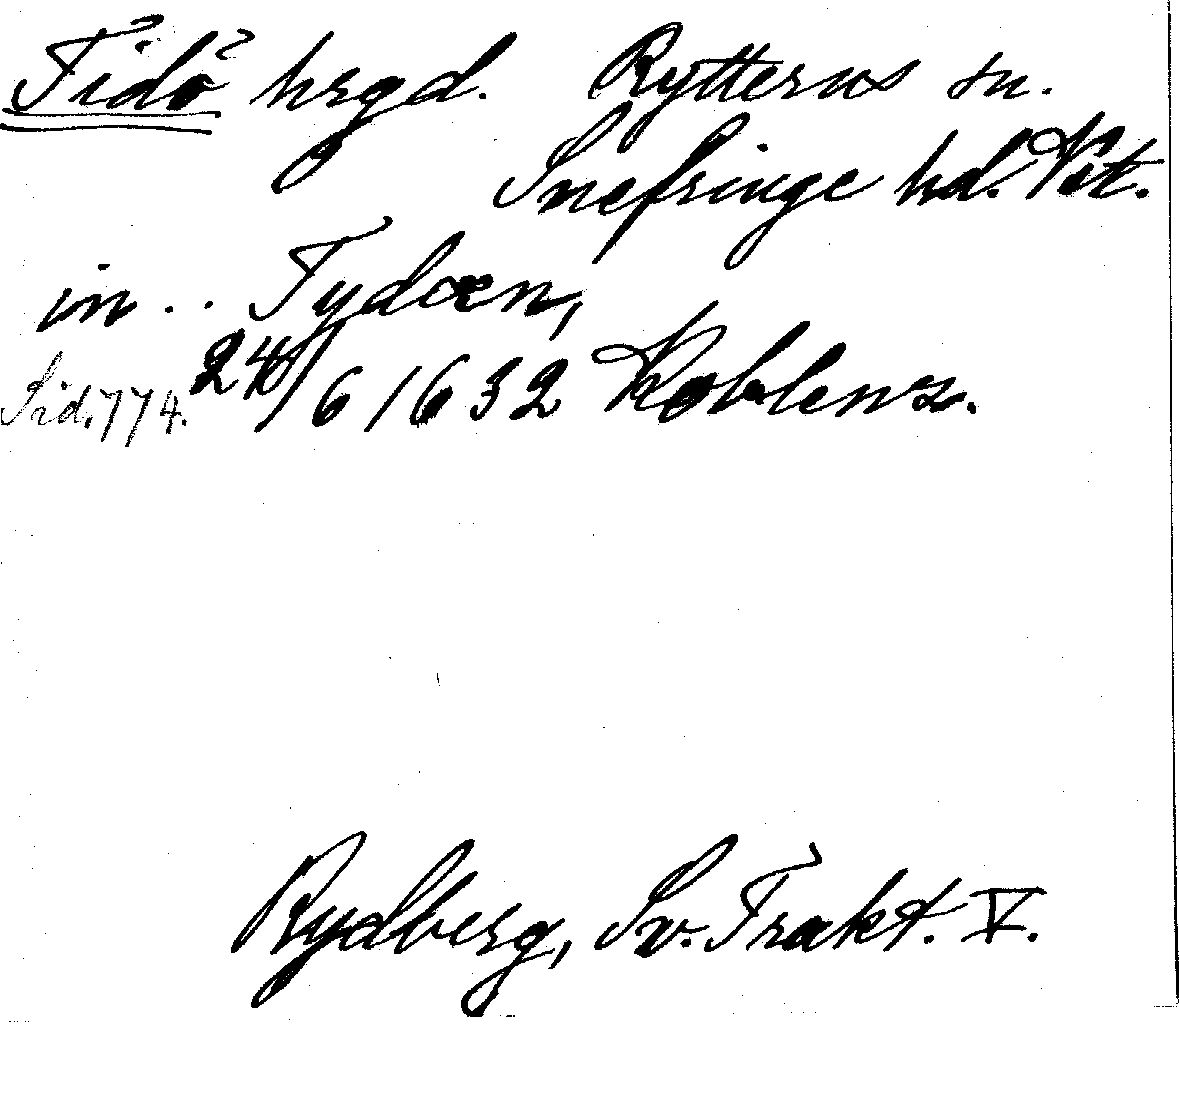 Tidö ? hrgd. Rytterns sn.
Snefringe hd. Vst.
in . . Tydœn,
Sid. 774. 24/6 1632 Koblenz.
Rydberg, Sv. Trakt. V.